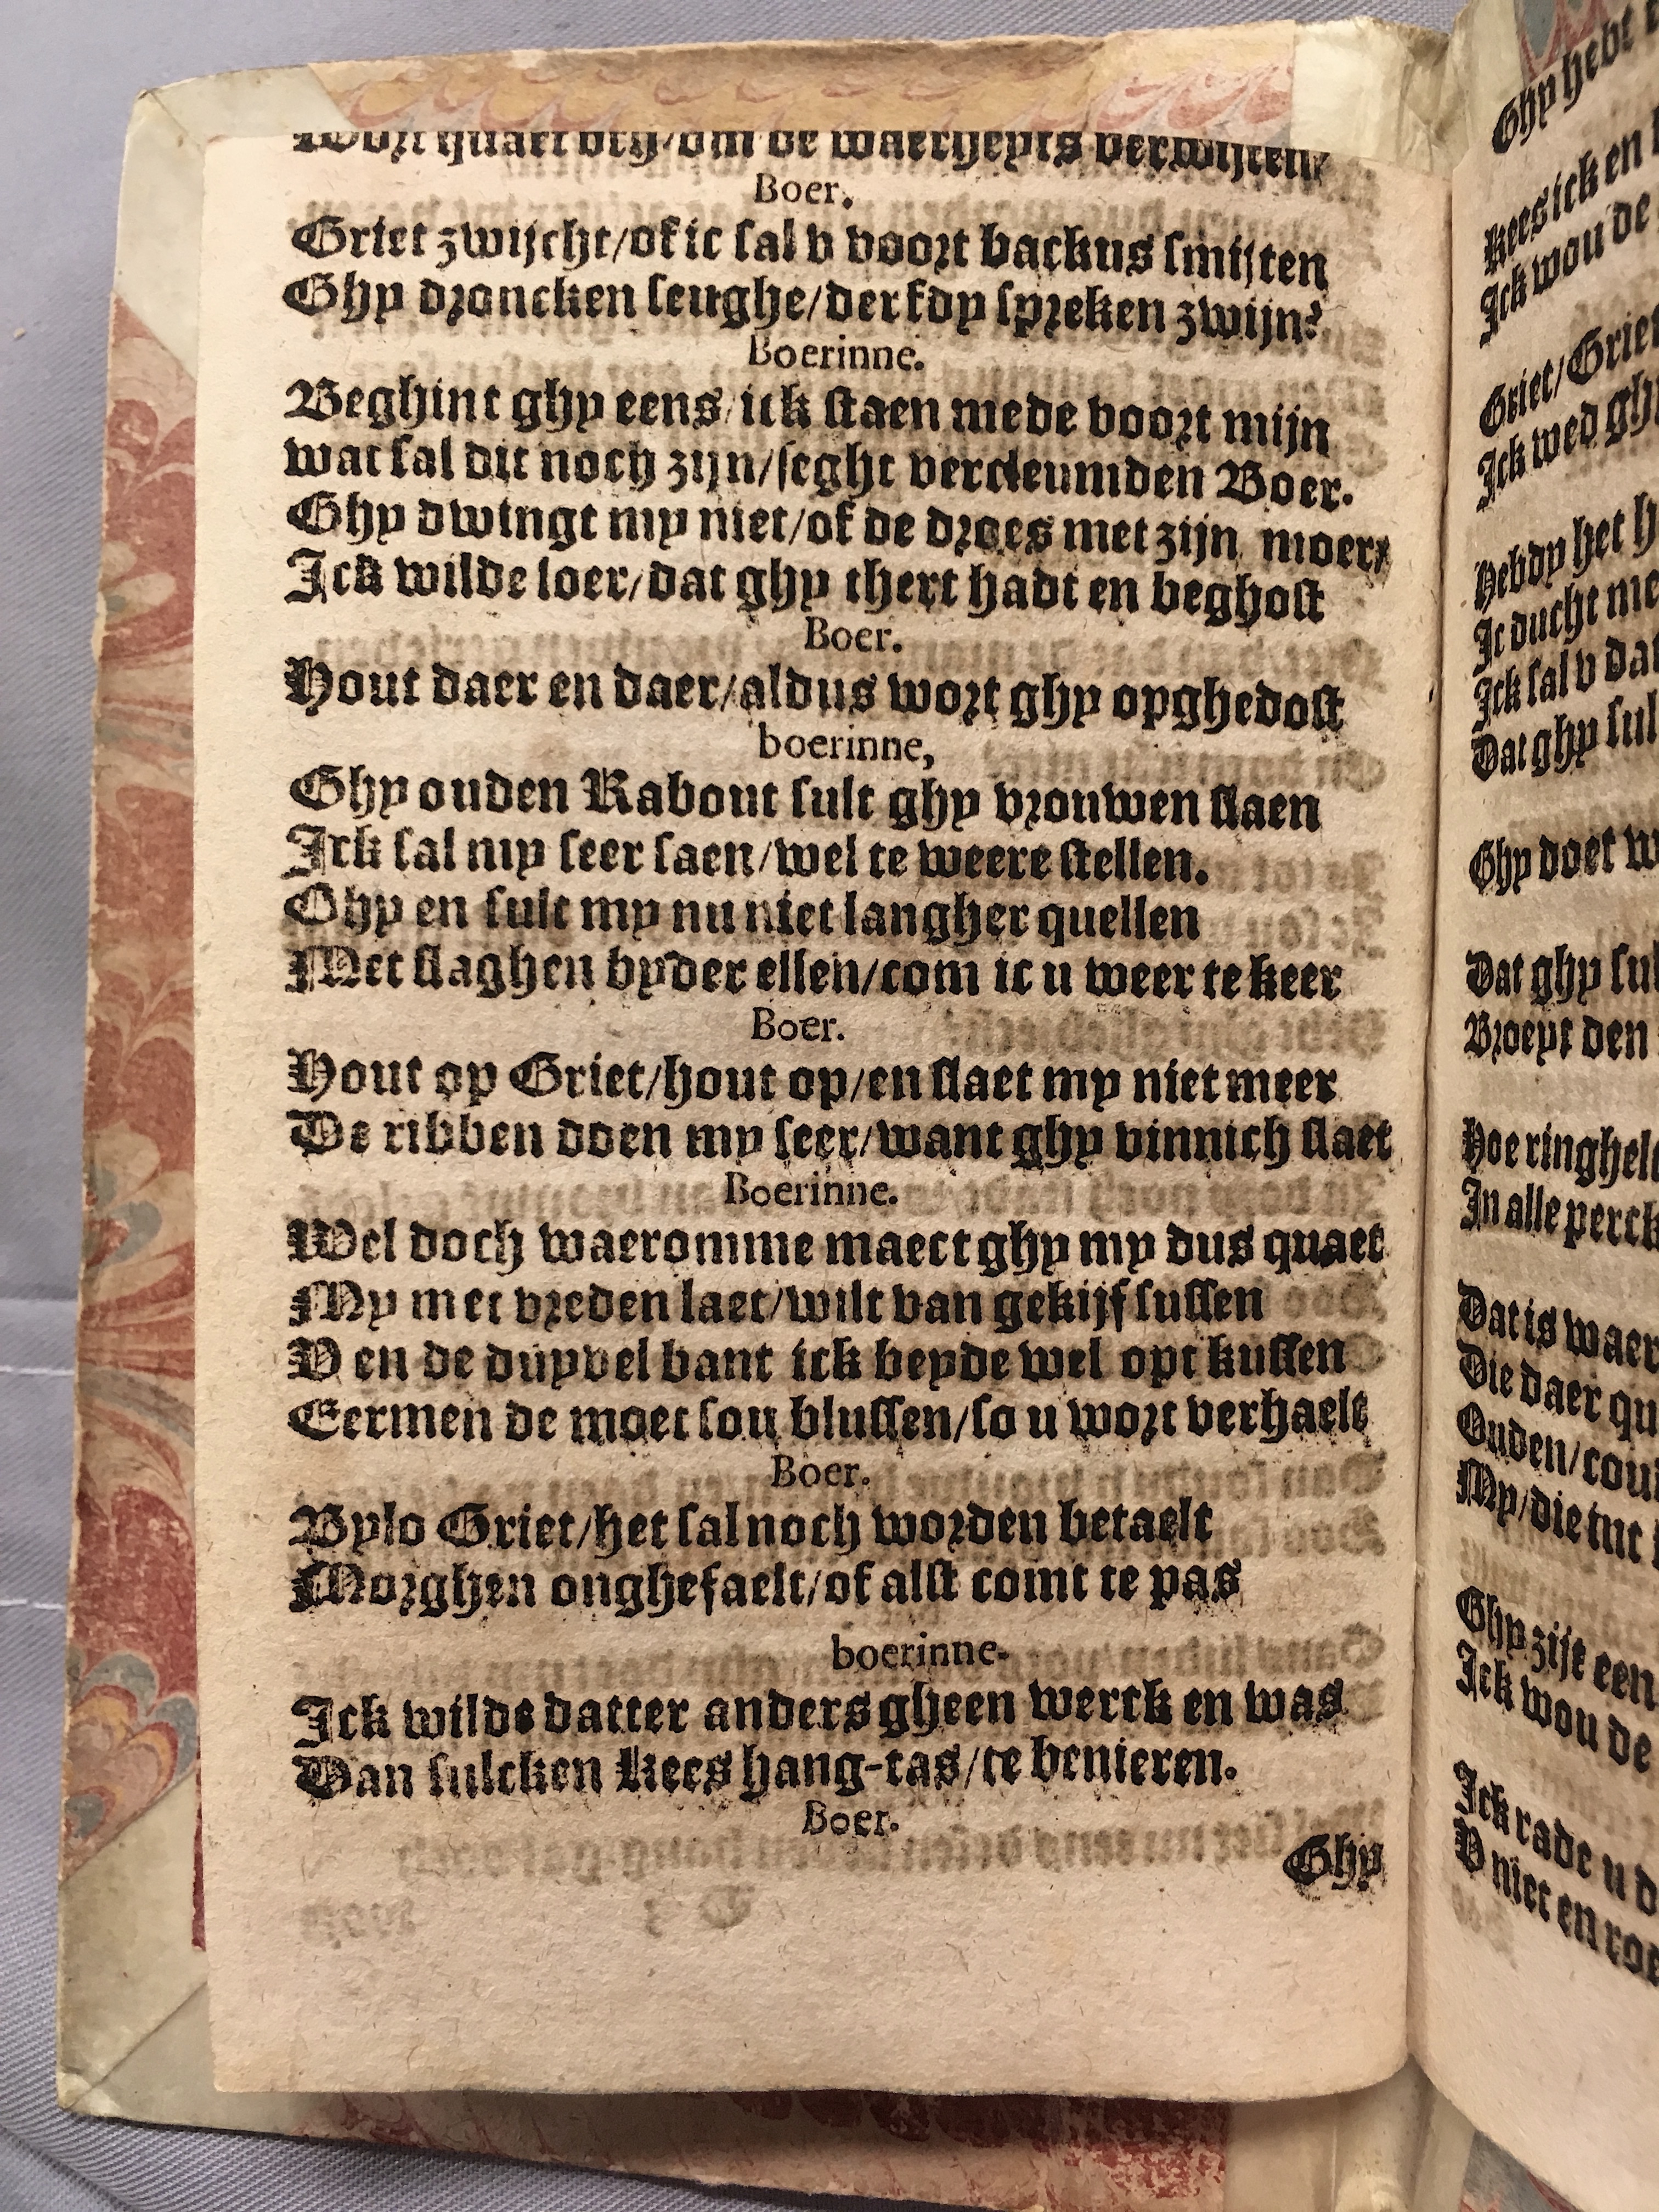 Wort quaet bry/om de waerheyts verwijten
Boer.
Griet zwijcht/of ic sal v voort backus smijten
Ghy droncken seughe/derfdy spreken zwijn?
Boerinne.
Beghint ghy eens/ick staen mede voort mijn
wat sal dit noch zijn/seght vercleumden Boer.
Ghy dwingt my niet/of de droes met zijn moer
Ick wilde loer/dat ghy thert hadt en beghost
Boer.
Hout daer en daer/aldus wort ghy opghedost
boerinne,
Ghy ouden Rabout sult ghy vrouwen slaen
Ick sal my seer saen/wel te weere stellen.
Ghy en sult my nu niet langher quellen
Met slaghen byder ellen/com ic u weer te keer
Boer.
Hout op Griet/hout op/en slaet my niet meer
De ribben doen my seer/want ghy vinnich slaet
Boerinne.
Wel doch waeromme maect ghy my dus quaet
My met vreden laet/wilt van gekijf sussen
V en de duyvel bant ick beyde wel opt kussen
Eermen de moet sou blussen/so u wort verhaelt
Boer.
Bylo Griet/het sal noch worden betaelt
Morghen onghefaelt/of alst comt te pas
boerinne.
Ick wilde datter anders gheen werck en was
Dan sulcken Kees hang-tas/te benieren.
Boer.
Ghy
Ghy hebt
Kees ick en
Ick wou de
Griet/Griet
Ick wed ghy
Hebdy het h
Ic ducht
Ick sal v dat
Dat ghy sul
Ghy doet w
Dat ghy sul
Broeyt den
Hoe ringhelt
In alle perck
Dat is waer
Die daer qu
Ouden/cou
My/die tuc
Ghy zijt een
Ick wou de
Ick rade u d
V niet en roe